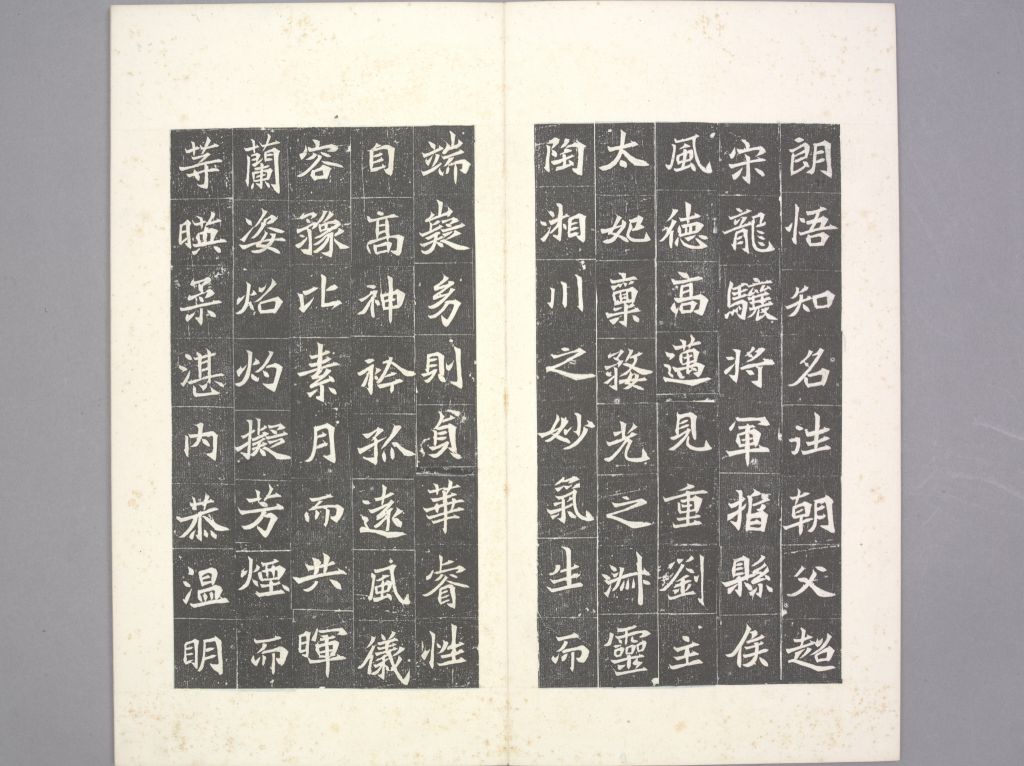 朗悟知名往朝父超
宋龍驤將軍揟縣侯
風徳高邁見重劉主
太妃稟婺光之淋靈
陶湘川之妙氣生而
端嶷㓜則貞華睿性
自高神衿孤遠風儀
容豫比素月而共暉
蘭姿炤灼擬芳煙而
等暎柔湛內恭温明